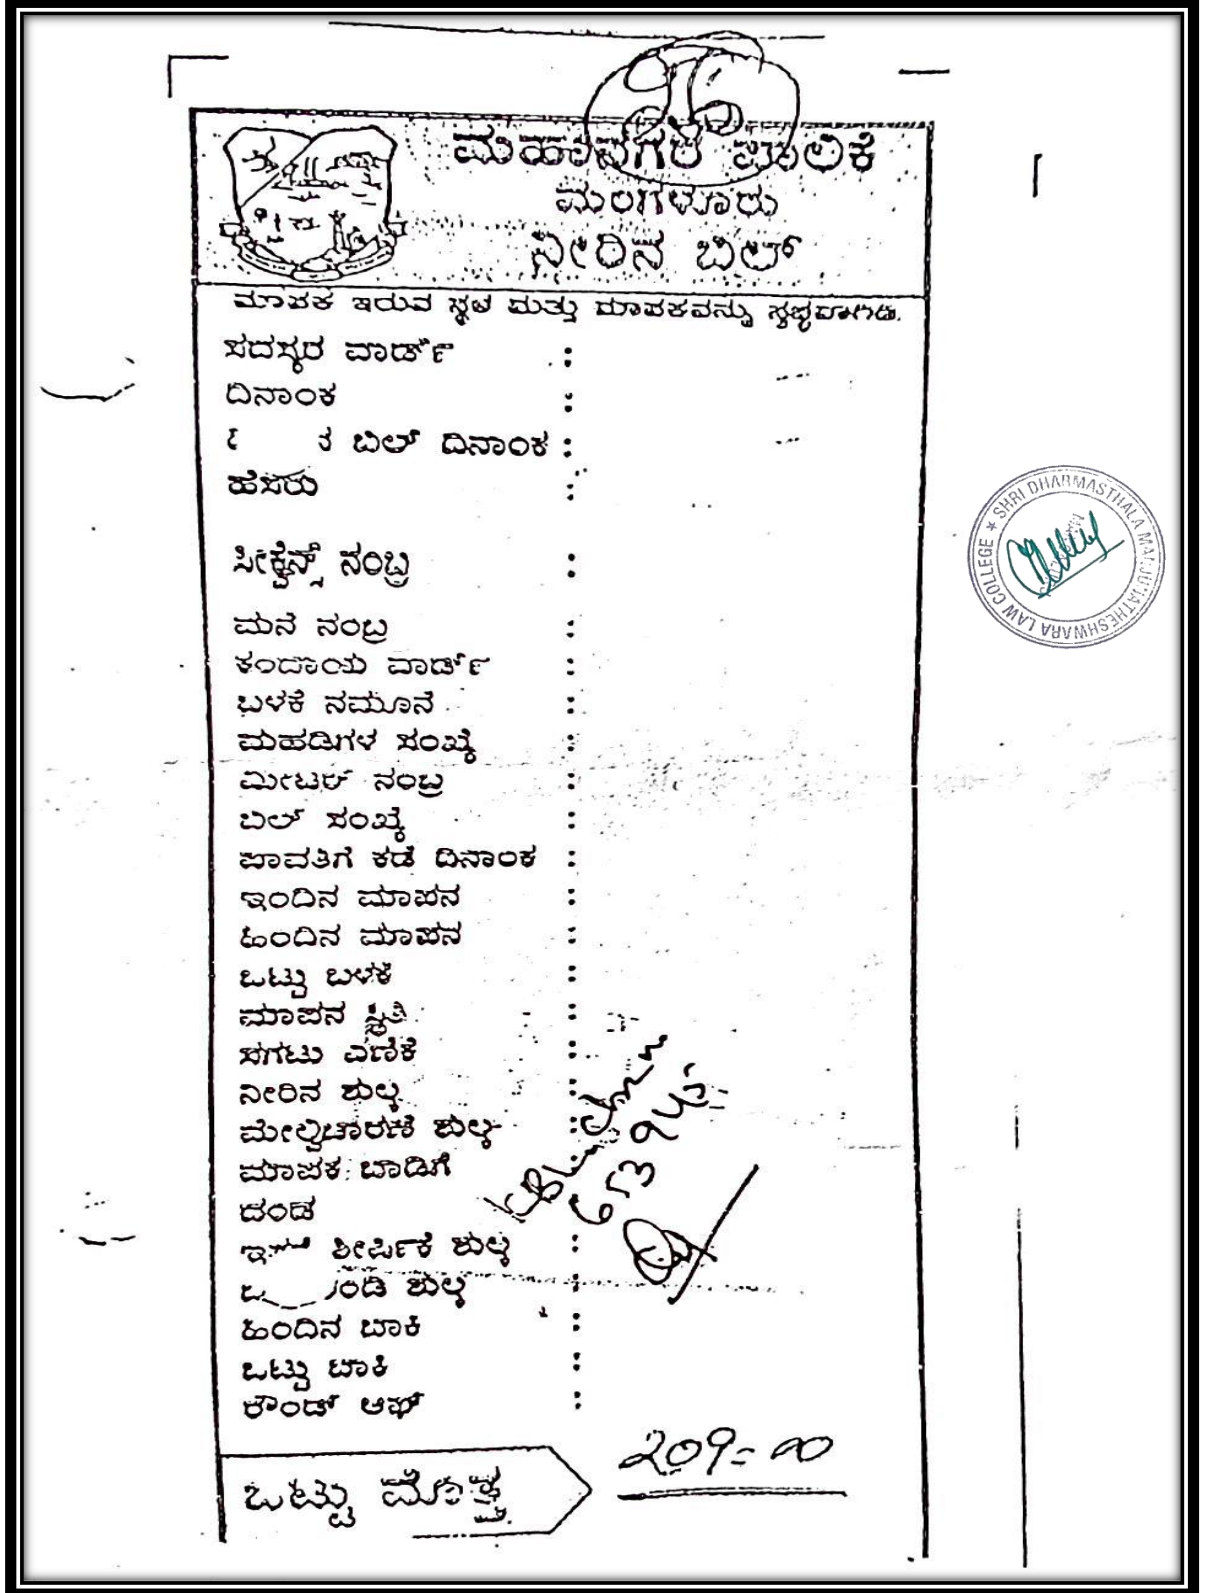 ಮಹಾನಗರ ಪಾಲಿಕೆ
ಮಂಗಳೂರು
ನೀರಿನ ಬಿಲ್
ಮಾಪಕ ಇರುವ ಸ್ಥಳ ಮತ್ತು ಮಾಪಕವನ್ನು ಸ್ವಚ್ಛವಾಗಿಡಿ.
ಸದಸ್ಯರ ವಾರ್ಡ್ :
ದಿನಾಂಕ :
ಬಿಲ್ ದಿನಾಂಕ :
ಹೆಸರು :
ಸೀಕ್ವೆನ್ಸ್ ನಂಬ್ರ :
ಮನೆ ನಂಬ್ರ :
ಕಂದಾಯ ವಾರ್ಡ್ :
ಬಳಕೆ ನಮೂನೆ :
ಮಹಡಿಗಳ ಸಂಖ್ಯೆ :
ಮೀಟರ್ ನಂಬ್ರ :
ಬಿಲ್ ಸಂಖ್ಯೆ :
ಪಾವತಿಗೆ ಕಡೆ ದಿನಾಂಕ :
ಇಂದಿನ ಮಾಪನ :
ಹಿಂದಿನ ಮಾಪನ :
ಒಟ್ಟು ಬಳಕೆ :
ಮಾಪನ ಸ್ಥಿತಿ :
ಸಗಟು ಎಣಿಕೆ :
ನೀರಿನ ಶುಲ್ಕ :
ಮೇಲ್ವಿಚಾರಣೆ ಶುಲ್ಕ :
ಮಾಪಕ ಬಾಡಿಗೆ :
ದಂಡ
ಶೀರ್ಷಿಕೆ ಶುಲ್ಕ :
ಶುಲ್ಕ :
ಹಿಂದಿನ ಬಾಕಿ :
ಒಟ್ಟು ಬಾಕಿ :
ರೌಂಡ್ ಆಫ್ :
ಒಟ್ಟು ಮೊತ್ತ 209=00
SHRI DHARMASTHALA MANJUNATHESHWARA LAW COLLEGE ★